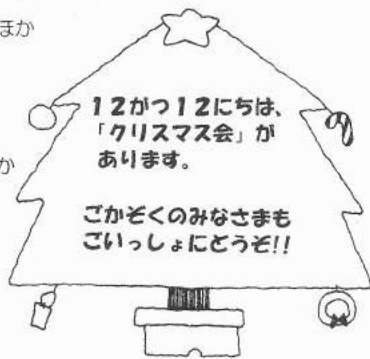 ほか
か
12がつ12にちは、
「クリスマス会」が
あります。
ごかぞくのみなさまも
ごいっしょにどうぞ!!